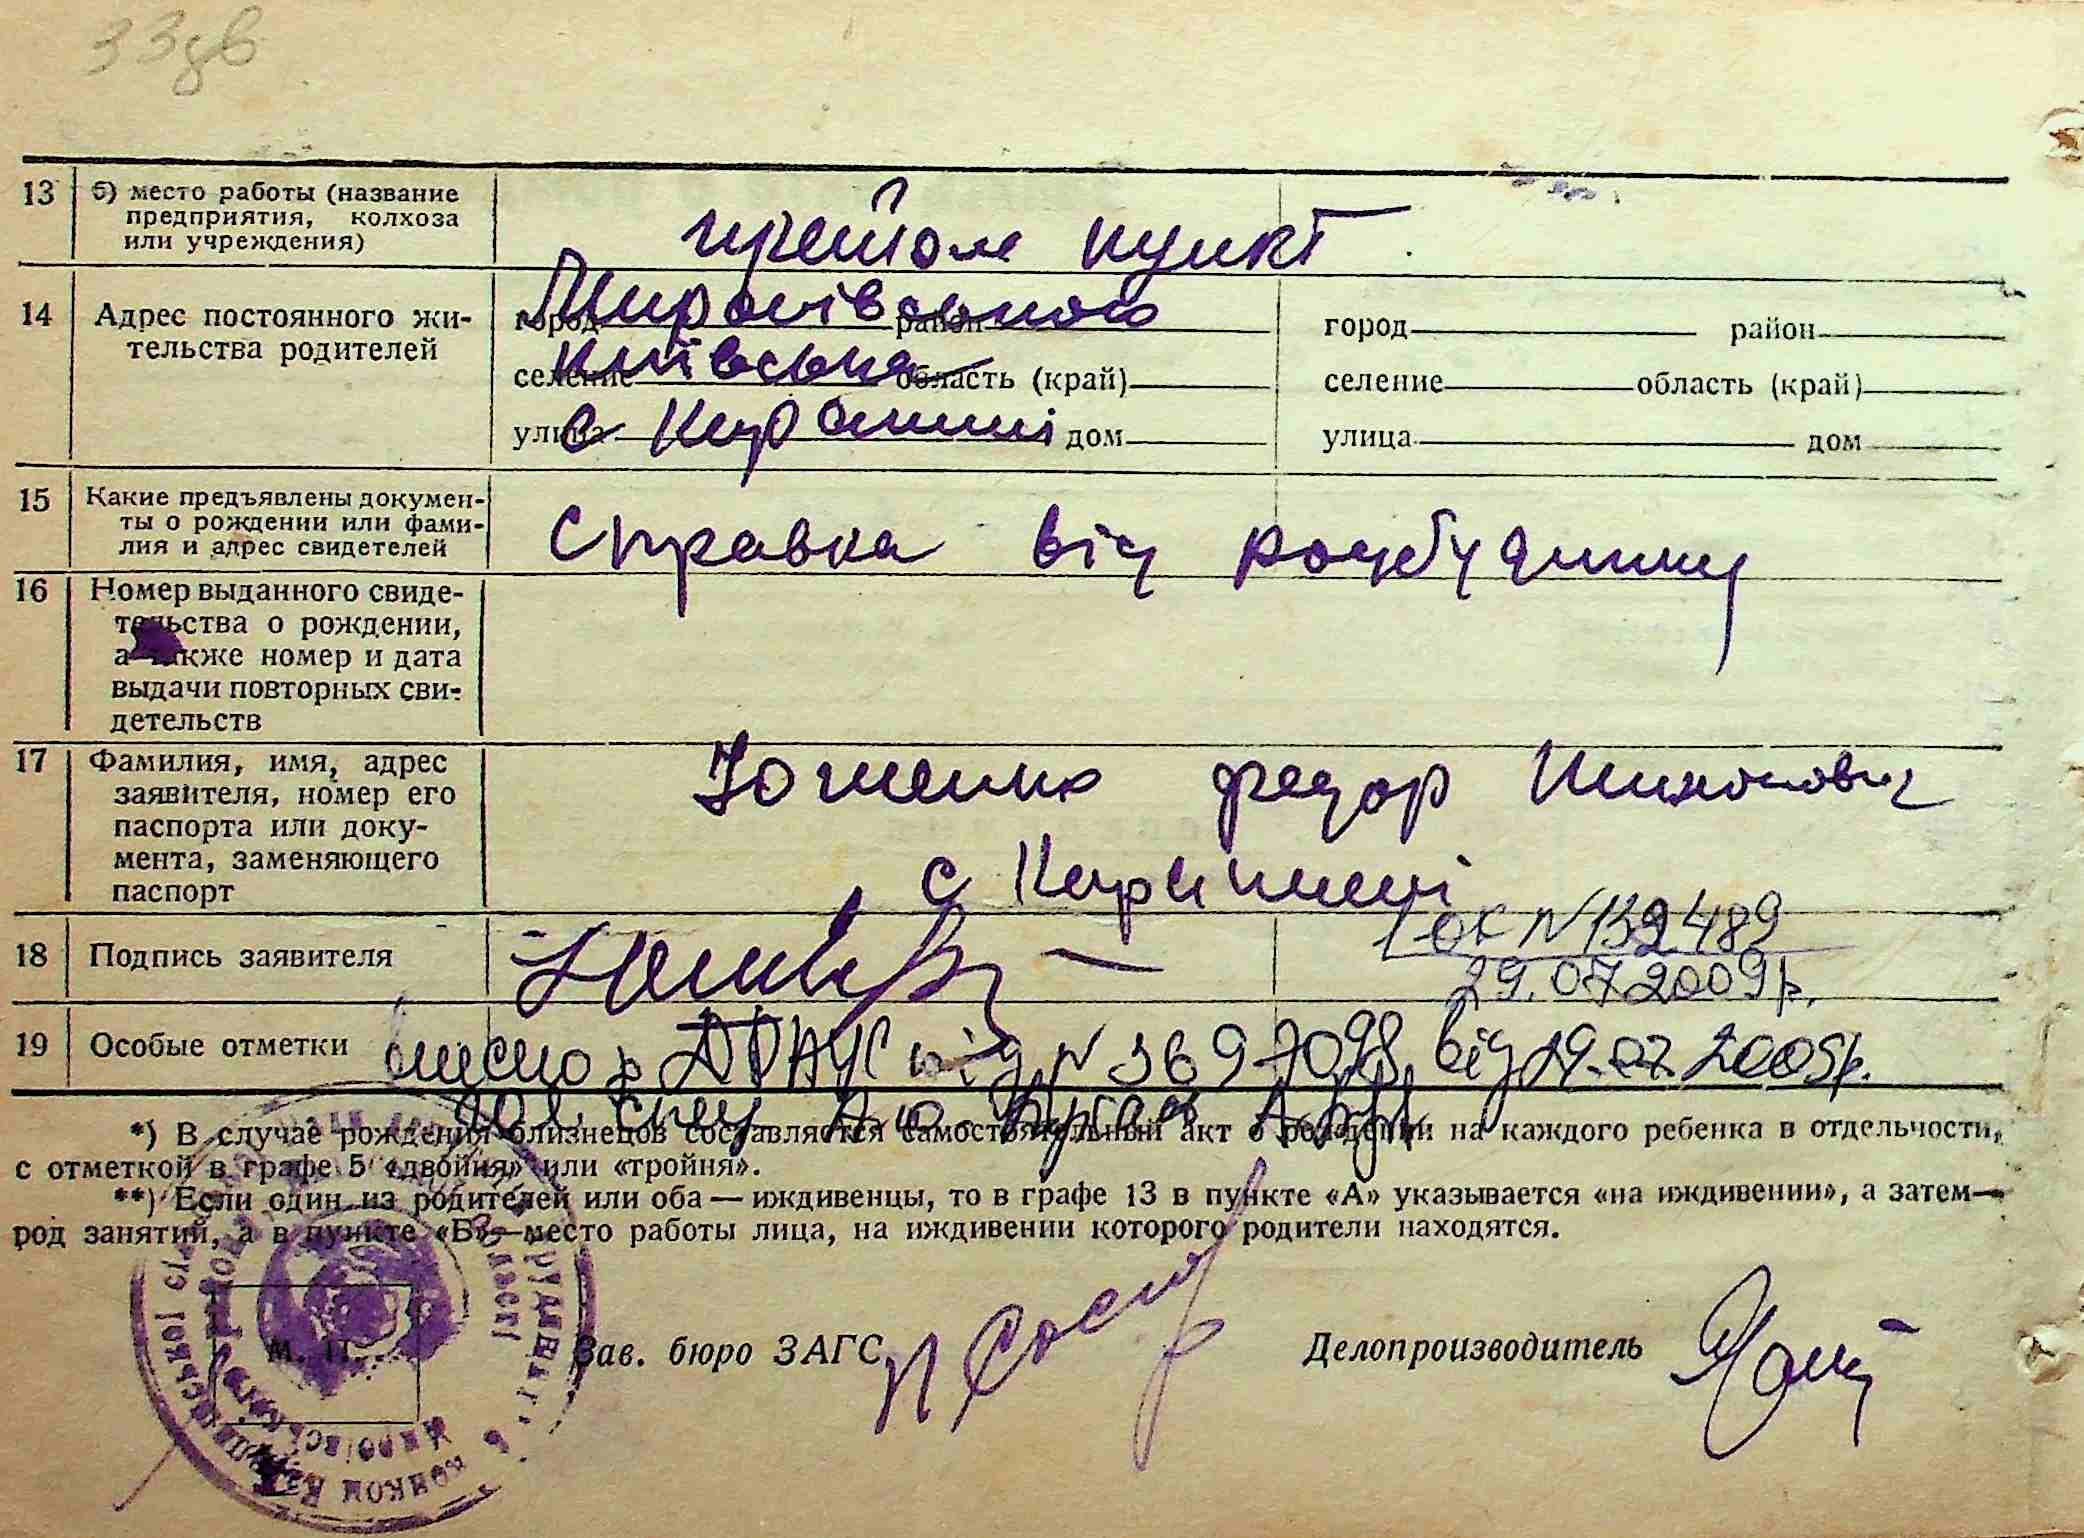 33зв
13 б) место работы (название
предприятия, колхоза
или учреждения)
пункт
14 Адрес постоянного жи-
тельства родителей
город район
Миронівського
город район
селение область (край)
Київська
селение область (край)
улица дом
с Карапиші
улица дом
15 Какие предъявлены докумен-
ты о рождении или фами-
лия и адрес свидетелей
Справка від родбудинку
16 Номер выданного свиде-
тельства о рождении,
а также номер и дата
выдачи повторных сви-
детельств
17 Фамилия, имя, адрес
заявителя, номер его
паспорта или доку-
мента, заменяющего
паспорт
Ющенко Федор Тихонович
с Карапиші
18 Подпись заявителя
1-ОК N 132489
29.07.2009р.
19 Особые отметки
N 3697098 від 29.07.2009р.
*) В случае рождения близнецов составляется самостоятельный акт о рождении на каждого ребенка в отдельности,
с отметкой в графе 5 «двойня» или «тройня».
**) Если один из родителей или оба — иждивенцы, то в графе 13 в пункте «А» указывается «на иждивении», а затем—
род занятий, а в пункте «Б»—место работы лица, на иждивении которого родители находятся.
М. П.
Зав. бюро ЗАГС
Делопроизводитель